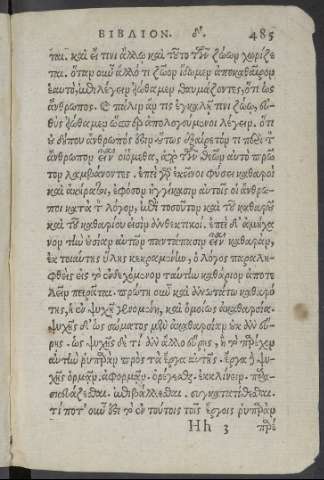 ΒΙΒΛΙΟΝ. δʹ. 485
ται. καὶ εἴ τινι ἄλλῳ καὶ τούτῳ τῶν ζώων χωρίζε
ται. ὅταν οὖν ἄλλό τι ζῶον ἴδωμεν ἀποκαθαῖρον
ἑαυτὸ, ἐπιλέγειν εἰώθαμεν θαυμάζοντες, ὅτι ὡς
ἄνθρωπος. Καὶ πάλιν ἄν τις ἐγκαλῇ τινι ζώῳ, εὐ-
θὺς εἰώθαμεν ὥσπερ ἀπολογούμενοι λέγειν. ὅτι
οὐ δήπου ἄνθρωπός ἐστιν. οὕτως ἐξαίρετόν τι περὶ τὸν
ἄνθρωπον εἶναι οἰόμεθα, ἀπὸ τῶν θεῶν αὐτὸ πρῶ
τον λαμβάνοντες. ἐπεὶ γὰρ ἐκεῖνοι φύσει καθαροὶ
καὶ ἀκήρατοι, ἐφόσον ἠγγίκασιν αὐτοῖς οἱ ἄνθρω-
ποι κατὰ τὸν λόγον, ἐπὶ τοσοῦτον καὶ τοῦ καθαροῦ
καὶ τοῦ καθαρίου εἰσὶν ἀνθεκτικοί. ἐπεὶ δ' ἀμήχα
νον τὴν οὐσίαν αὐτῶν παντάπασιν εἶναι καθαρὰν,
ἐκ τοιαύτης ὕλης κεκραμένην, ὁ λόγος παραλη-
φθεὶς εἰς τὸ ἐνδεχόμενον ταύτην καθάριον ἀποτε
λεῖν πειρᾶται. ἡ πρώτη οὖν καὶ ἀνωτάτω καθαρό
της, ἡ ἐν ψυχῇ γενομένη, καὶ ὁμοίως ἀκαθαρσία.
ψυχῆς δ' ὡς σώματος μὲν ἀκαθαρσίαν οὐκ ἂν εὕ-
ροις. ὡς ψυχῆς δὲ τί ἂν ἄλλο εὕροις, ἢ τὸ παρέχον
αὐτὴν ῥυπαρὰν πρὸς τὰ ἔργα αὐτῆς. ἔργα δὲ ψυ-
χῆς ὁρμᾶν, ἀφορμᾶν. ὀρέγεσθαι. ἐκκλίνειν. παρα-
σκευάζεσθαι. ἐπιβάλλεσθαι. συγκατατίθεσθαι.
τί ποτ' οὖν ἐστι τὸ ἐν τούτοις τοῖς ἔργοις ῥυπαρὰν
Hh 3 παρέ